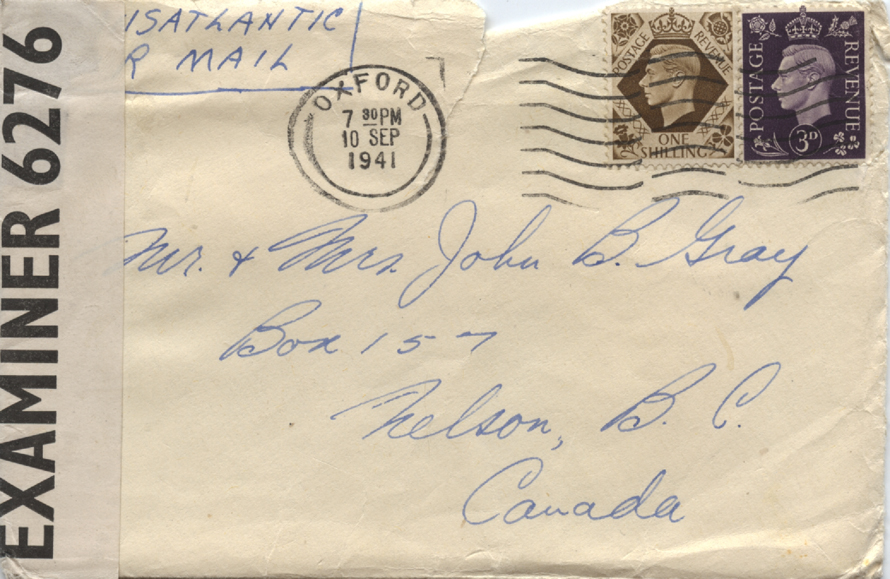 EXAMINER 6276
NSATLANTIC
R MAIL
OXFORD
7 30PM
10 SEP
1941
POSTAGE REVENUE
ONE
SHILLING
POSTAGE REVENUE
3D
Mr. & Mrs. John B. Gray
Box 157
Nelson, B. C.
Canada